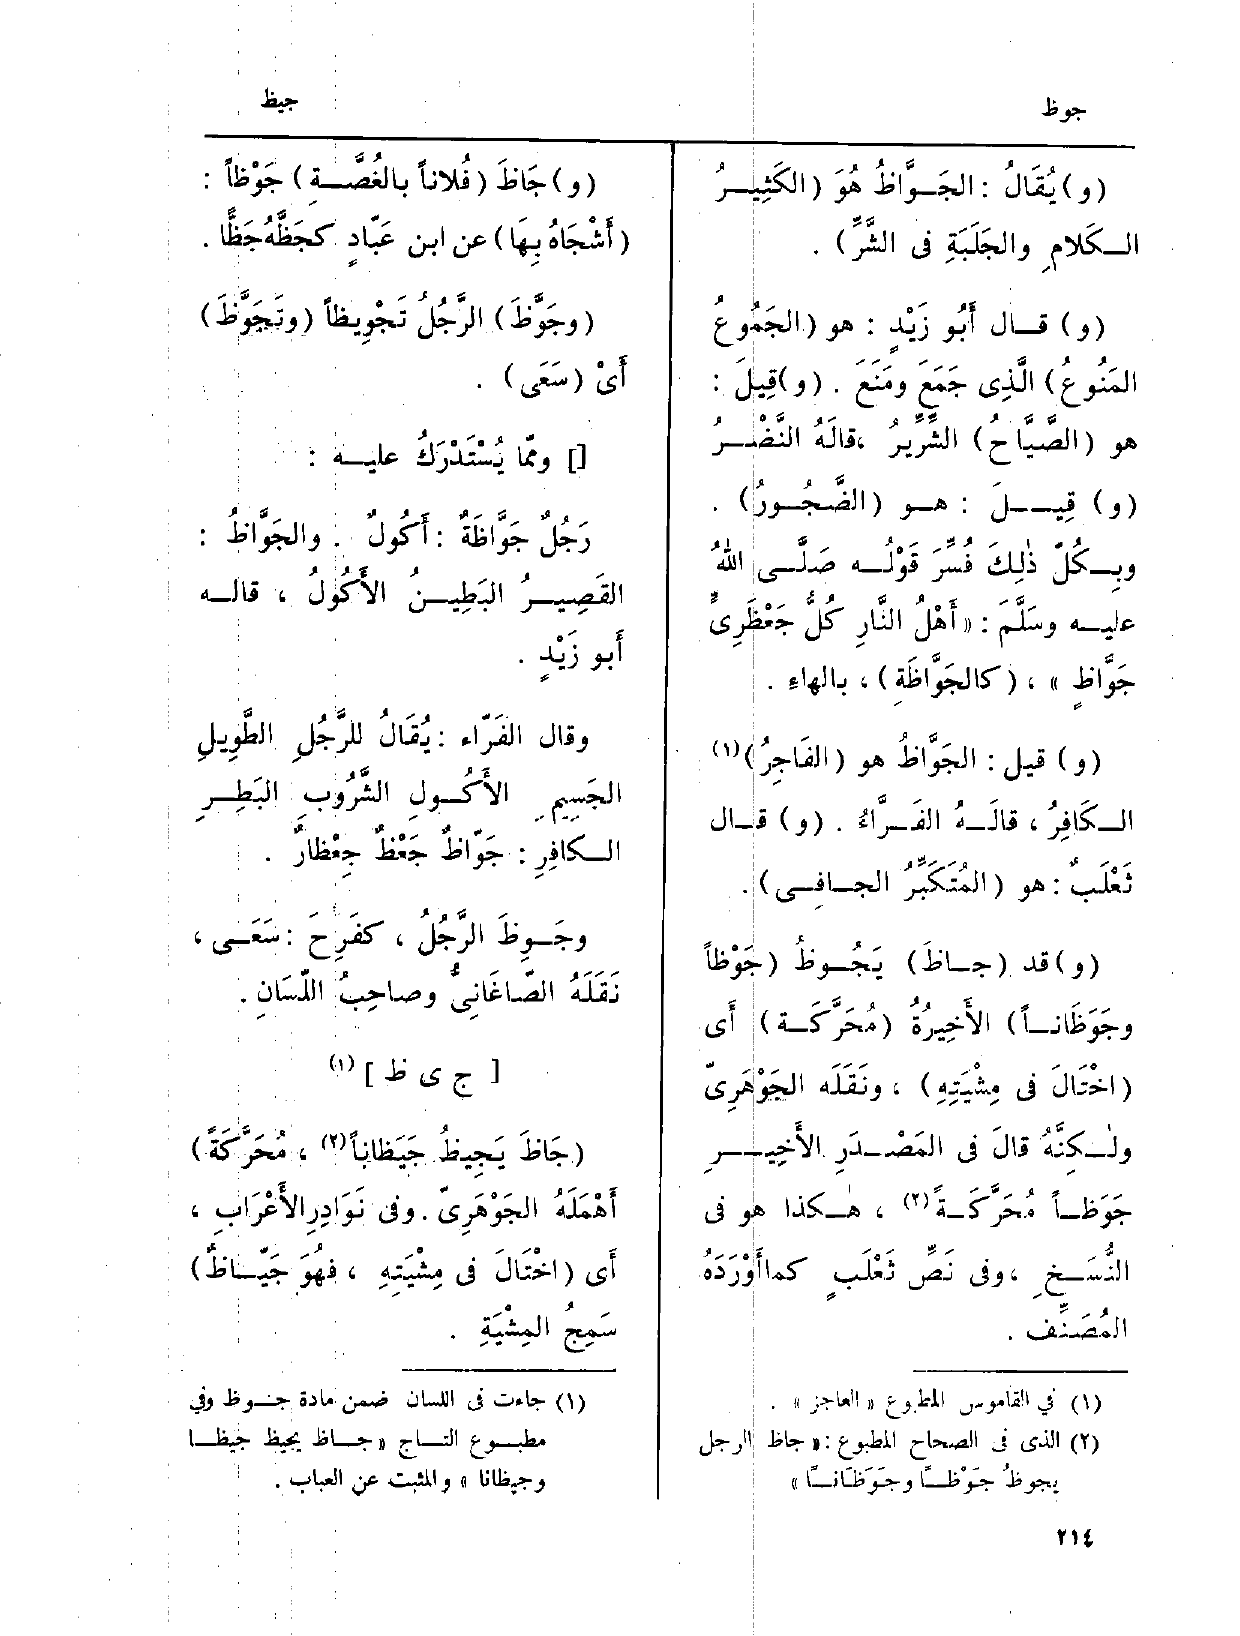 جوظ
جيظ
(و) يُقَالُ : الجَوَّاظُ هُوَ (الكَثِيرُ
الكَلامِ والجَلَبَةِ فى الشَّرِّ) .
(و) قال أَبُو زَيْدٍ : هو (الجَمُوعُ
المَنُوعُ) الَّذِى جَمَعَ ومَنَعَ . (و) قِيلَ :
هو (الصَّيَّاحُ) الشِّرِّيرُ ، قالَهُ النَّضْرُ
(و) قِيلَ : هو (الضَّجُورُ) .
وبِكُلِّ ذٰلِكَ فُسِّرَ قَوْلُه صَلَّى اللهُ
عليه وسَلَّمَ : « أَهْلُ النَّارِ كُلُّ جَعْظَرِىٍّ
جَوَّاظٍ » ، (كالجَوَّاظَةِ) ، بالهاء .
(و) قيل : الجَوَّاظُ هو (الفَاجِرُ)(١)
الكَافِرُ ، قالَهُ الفَرَّاءُ . (و) قال
ثَعْلَبٌ : هو (المُتَكَبِّرُ الجافِى) .
(و) قد (جاظَ) يَجُوظُ (جَوْظاً
وجَوَظَاناً) الأَخِيرَةُ (مُحَرَّكَة) أى
(اخْتَالَ فى مِشْيَتِهِ) ، ونَقَلَه الجَوْهَرِىّ
ولٰكِنَّهُ قالَ فى المَصْدَرِ الأَخِيرِ
جَوَظاً مُحَرَّكَةً(٢) ، هٰكذا هو فى
النُّسَخِ ، وفى نَصِّ ثَعْلَبٍ كما أَوْرَدَهُ
المُصَنِّف .
(١) في القاموس المطبوع « العاجز » .
(٢) الذى فى الصحاح المطبوع : « جاظ الرجل
يجوظُ جَوْظًا وجَوَظَانًا »
(و) جَاظَ (فُلاناً بالغُصَّةِ) جَوْظاً :
(أَشْجَاهُ بِهَا) عن ابن عَبّادٍ كجَظَّهُ جَظًّا .
(وجَوَّظَ) الرَّجُلُ تَجْوِيظاً (وتَجَوَّظَ)
أَىْ (سَعَى) .
[] وممّا يُسْتَدْرَكُ عليه :
رَجُلٌ جَوَّاظَةٌ : أَكُولٌ . والجَوَّاظُ :
القَصِيرُ البَطِينُ الأَكُولُ ، قاله
أبو زَيْدٍ .
وقال الفَرّاء : يُقَالُ للرَّجُلِ الطَّوِيلِ
الجَسِيمِ الأَكُولِ الشَّرُوبِ البَطِرِ
الكافِرِ : جَوّاظٌ جَعْظٌ جِعْظارٌ .
وجَوِظَ الرَّجُلُ ، كفَرِحَ : سَعَى ،
نَقَلَهُ الصّاغَانِىُّ وصاحِبُ اللِّسَانِ .
[ ج ى ظ ] (١)
(جَاظَ يَجِيظُ جَيَظاناً(٢) ، مُحَرَّكَةً)
أَهْمَلَهُ الجَوْهَرِىّ . وفى نَوَادِرِ الأَعْرَابِ ،
أى (اخْتَالَ فى مِشْيَتِهِ ، فهُوَ جَيّاظٌ)
سَمِجُ المِشْيَةِ .
(١) جاءت فى اللسان ضمن مادة جنوظ وفي
مطبوع التاج « جاظ يجيظ جيظا
وجيظانا » والمثبت عن العباب .
٢١٤